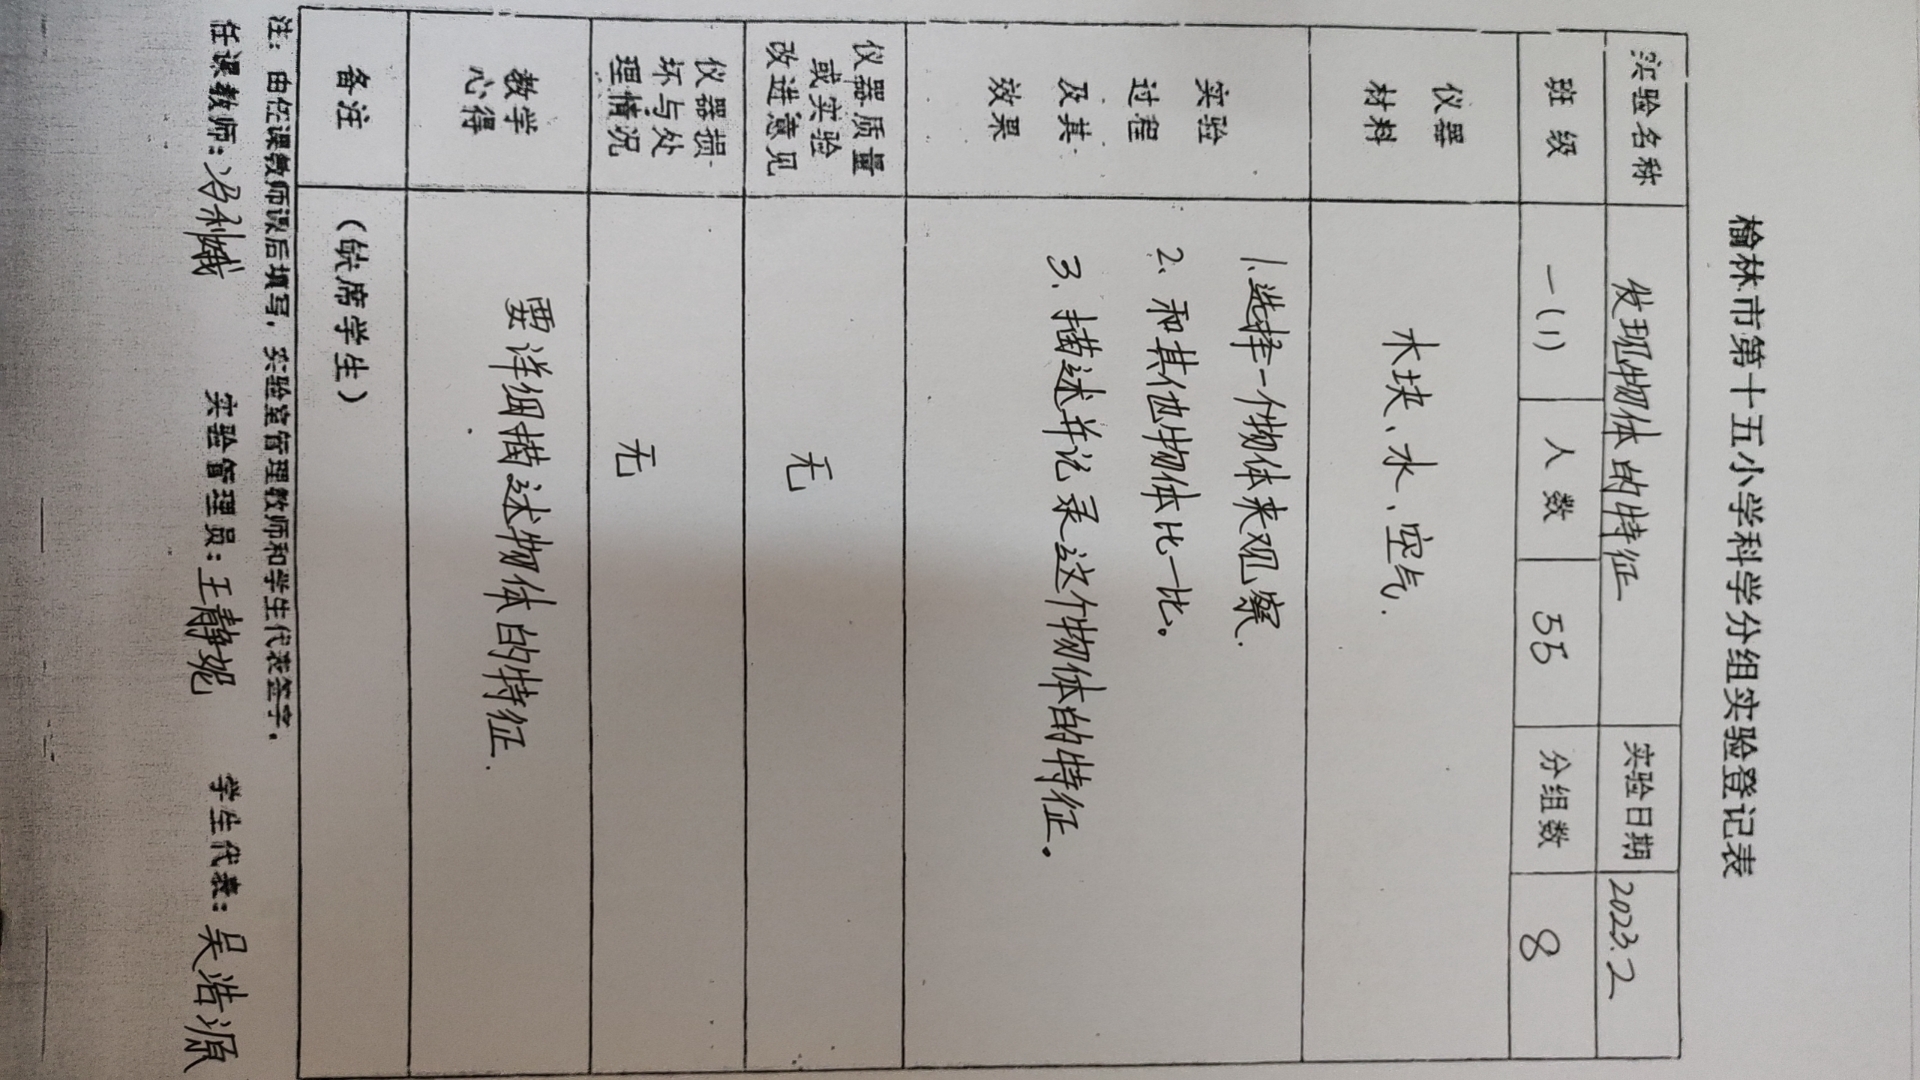 榆林市第十五小学科学分组实验登记表
实验名称 发现物体的特征 实验日期 2023.2
班级 一(1) 人数 55 分组数 8
仪器
材料
木块、水、空气.
实验
过程
及其
效果
1.选择一个物体来观察.
2.和其他物体比一比。
3.描述并记录这个物体的特征。
仪器质量
或实验
改进意见
无
仪器损
坏与处
理情况
无
教学
心得
要详细描述物体的特征.
备注 (缺席学生)
注：由任课教师课后填写，实验室管理教师和学生代表签字。
任课教师：冯利娥 实验管理员：王静妮 学生代表：吴浩源